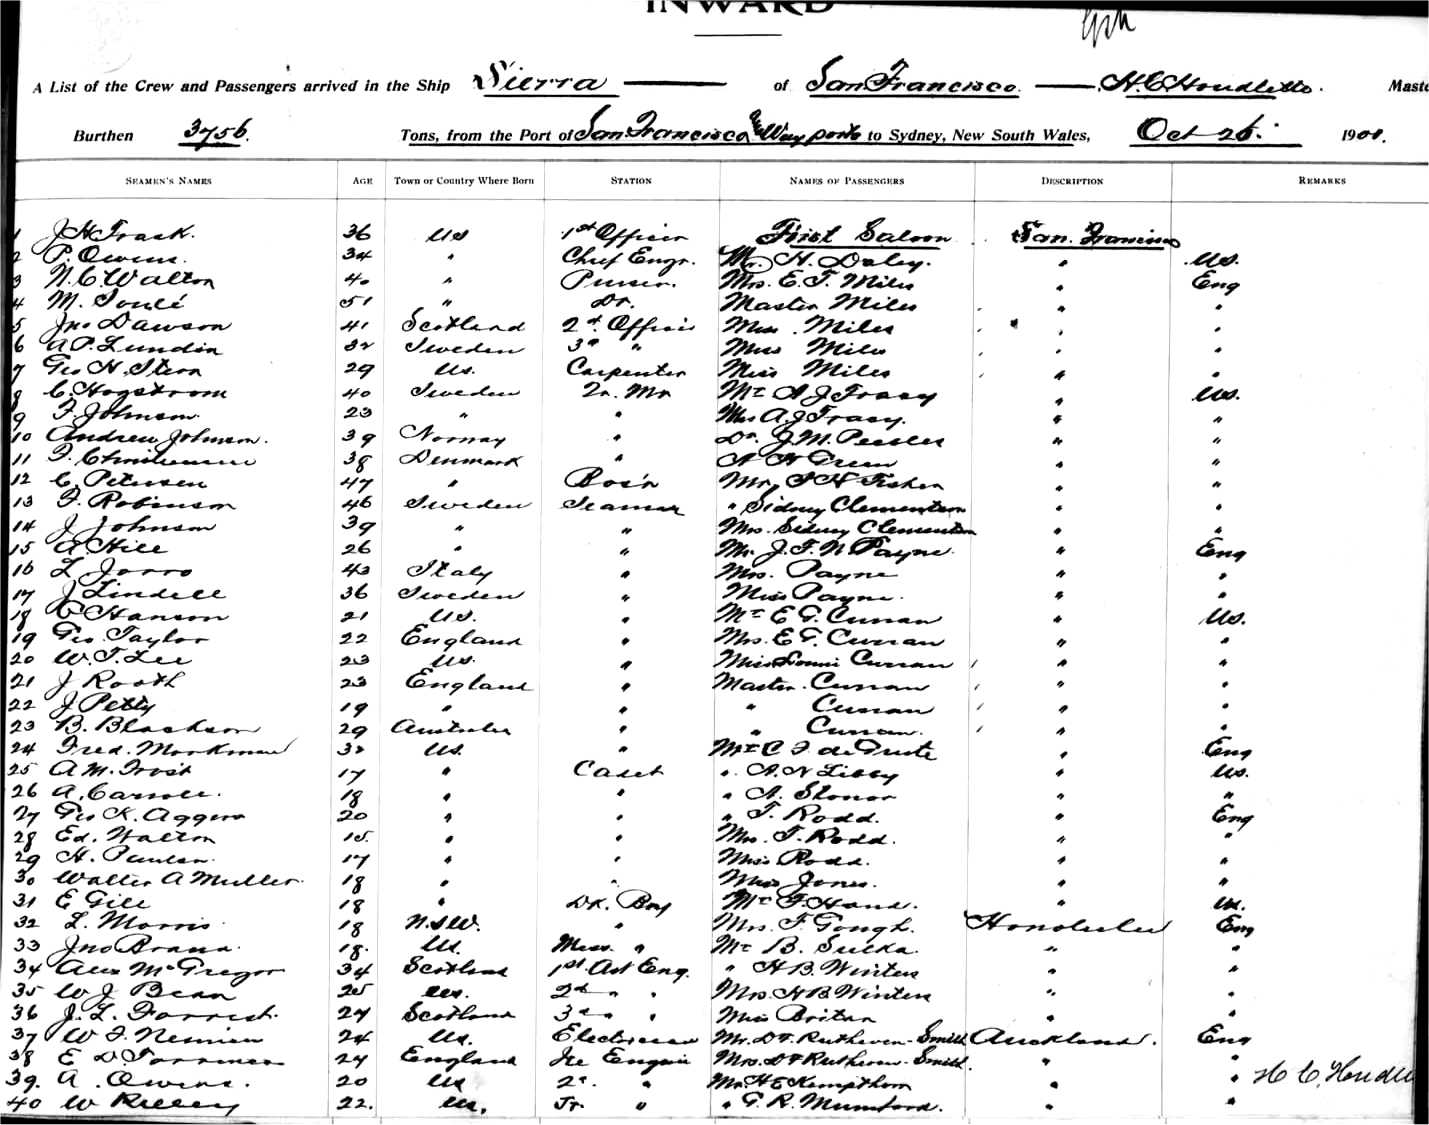 INWARD
A List of the Crew and Passengers arrived in the Ship Sierra of San Francisco H.C. Houdlette Maste
Burthen 3756 Tons, from the Port of San Francisco & Way ports to Sydney, New South Wales, Oct 26. 190
SEAMEN'S NAMES AGE TOWN OR COUNTRY WHERE BORN STATION NAMES OF PASSENGERS DESCRIPTION REMARKS
1 J H Trask. 36 US 1st Officer First Saloon San Francisco
2 P. Owens. 34 " Chief Engr. Mr. H. Daley. " US.
3 N.C. Walton 40 " Purser. Mrs. E. T. Miles " Eng
4 M. Soulé 51 " Dr. Master Miles " "
5 Jno Dawson 41 Scotland 2d. Officer Miss Miles " "
6 A P. Lundin 32 Sweden 3d " Miss Miles " "
7 Geo H. Stern 29 US. Carpenter Miss Miles " "
8 C. Hogstrom 40 Sweden Qr. Mr Mr A J Tracy " US.
9 Johnson 23 " " Mrs A. J Tracy. " "
10 Andrew Johnson. 39 Norway " Dr. J. M. Peebles " "
11 38 Denmark " Green " "
12 C. Petersen 47 " Bos'n Mr. Fisher " "
13 F. Robinson 46 Sweden Seaman " Sidney Clementson " "
14 J Johnson 39 " " Mrs. Sidney Clementson " "
15 Hill 26 " " Mr. J. F. N. Payne. " Eng
16 L 43 Italy " Mrs. Payne " "
17 J Lindell 36 Sweden " Miss Payne. " "
18 C Hanson 21 US. " Mr E G. Curran " US.
19 Geo. Taylor 22 England " Mrs. E G. Curran " "
20 W. T. Lee 23 US. " Miss Curran " "
21 J Rooth 23 England " Master. Curran " "
22 J Petty 19 " " " Curran " "
23 B. Blackson 29 Australia " " Curran. " "
24 Fred. Markman 32 US. " Mr C F de " Eng
25 A M. Frost 17 " Cadet " A. N Libby " US.
26 A. Carroll. 18 " " " A. Stonor " "
27 Geo K. Aggers 20 " " " T. Rodd. " Eng
28 Ed. Walton 15. " " Mrs. T. Rodd. " "
29 H. Paulsen. 17 " " Miss Rodd. " "
30 Walter A Muller. 18 " " Miss Jones. " "
31 E Gill 18 " Dk. Boy Mr F. Hand. " US.
32 L. Morris 18 N.S.W. " Mrs. F. Gough. Honolulu Eng
33 Jno Brand. 18. US. Mess. " Mr B. " "
34 Alex McGregor 34 Scotland 1st. Ast Eng. " H B. Winters " "
35 W J Bean 25 US. 2d " " Mrs. H B Winters " "
36 J. L. Forrest. 27 Scotland 3d " " Miss Britan " "
37 W F. Nemien 24 US. Electrician Mr. D F. Ruthven-Smith Auckland. Eng
38 E D 27 England Ice Engnr Mrs. D F Ruthven-Smith. " "
39. A. Owens. 20 US 2d. " Mr. H E Kempthorn " " H. C. Houdle
40 W Kelley 22. US. Jr. " " G. R. Mumford. " "